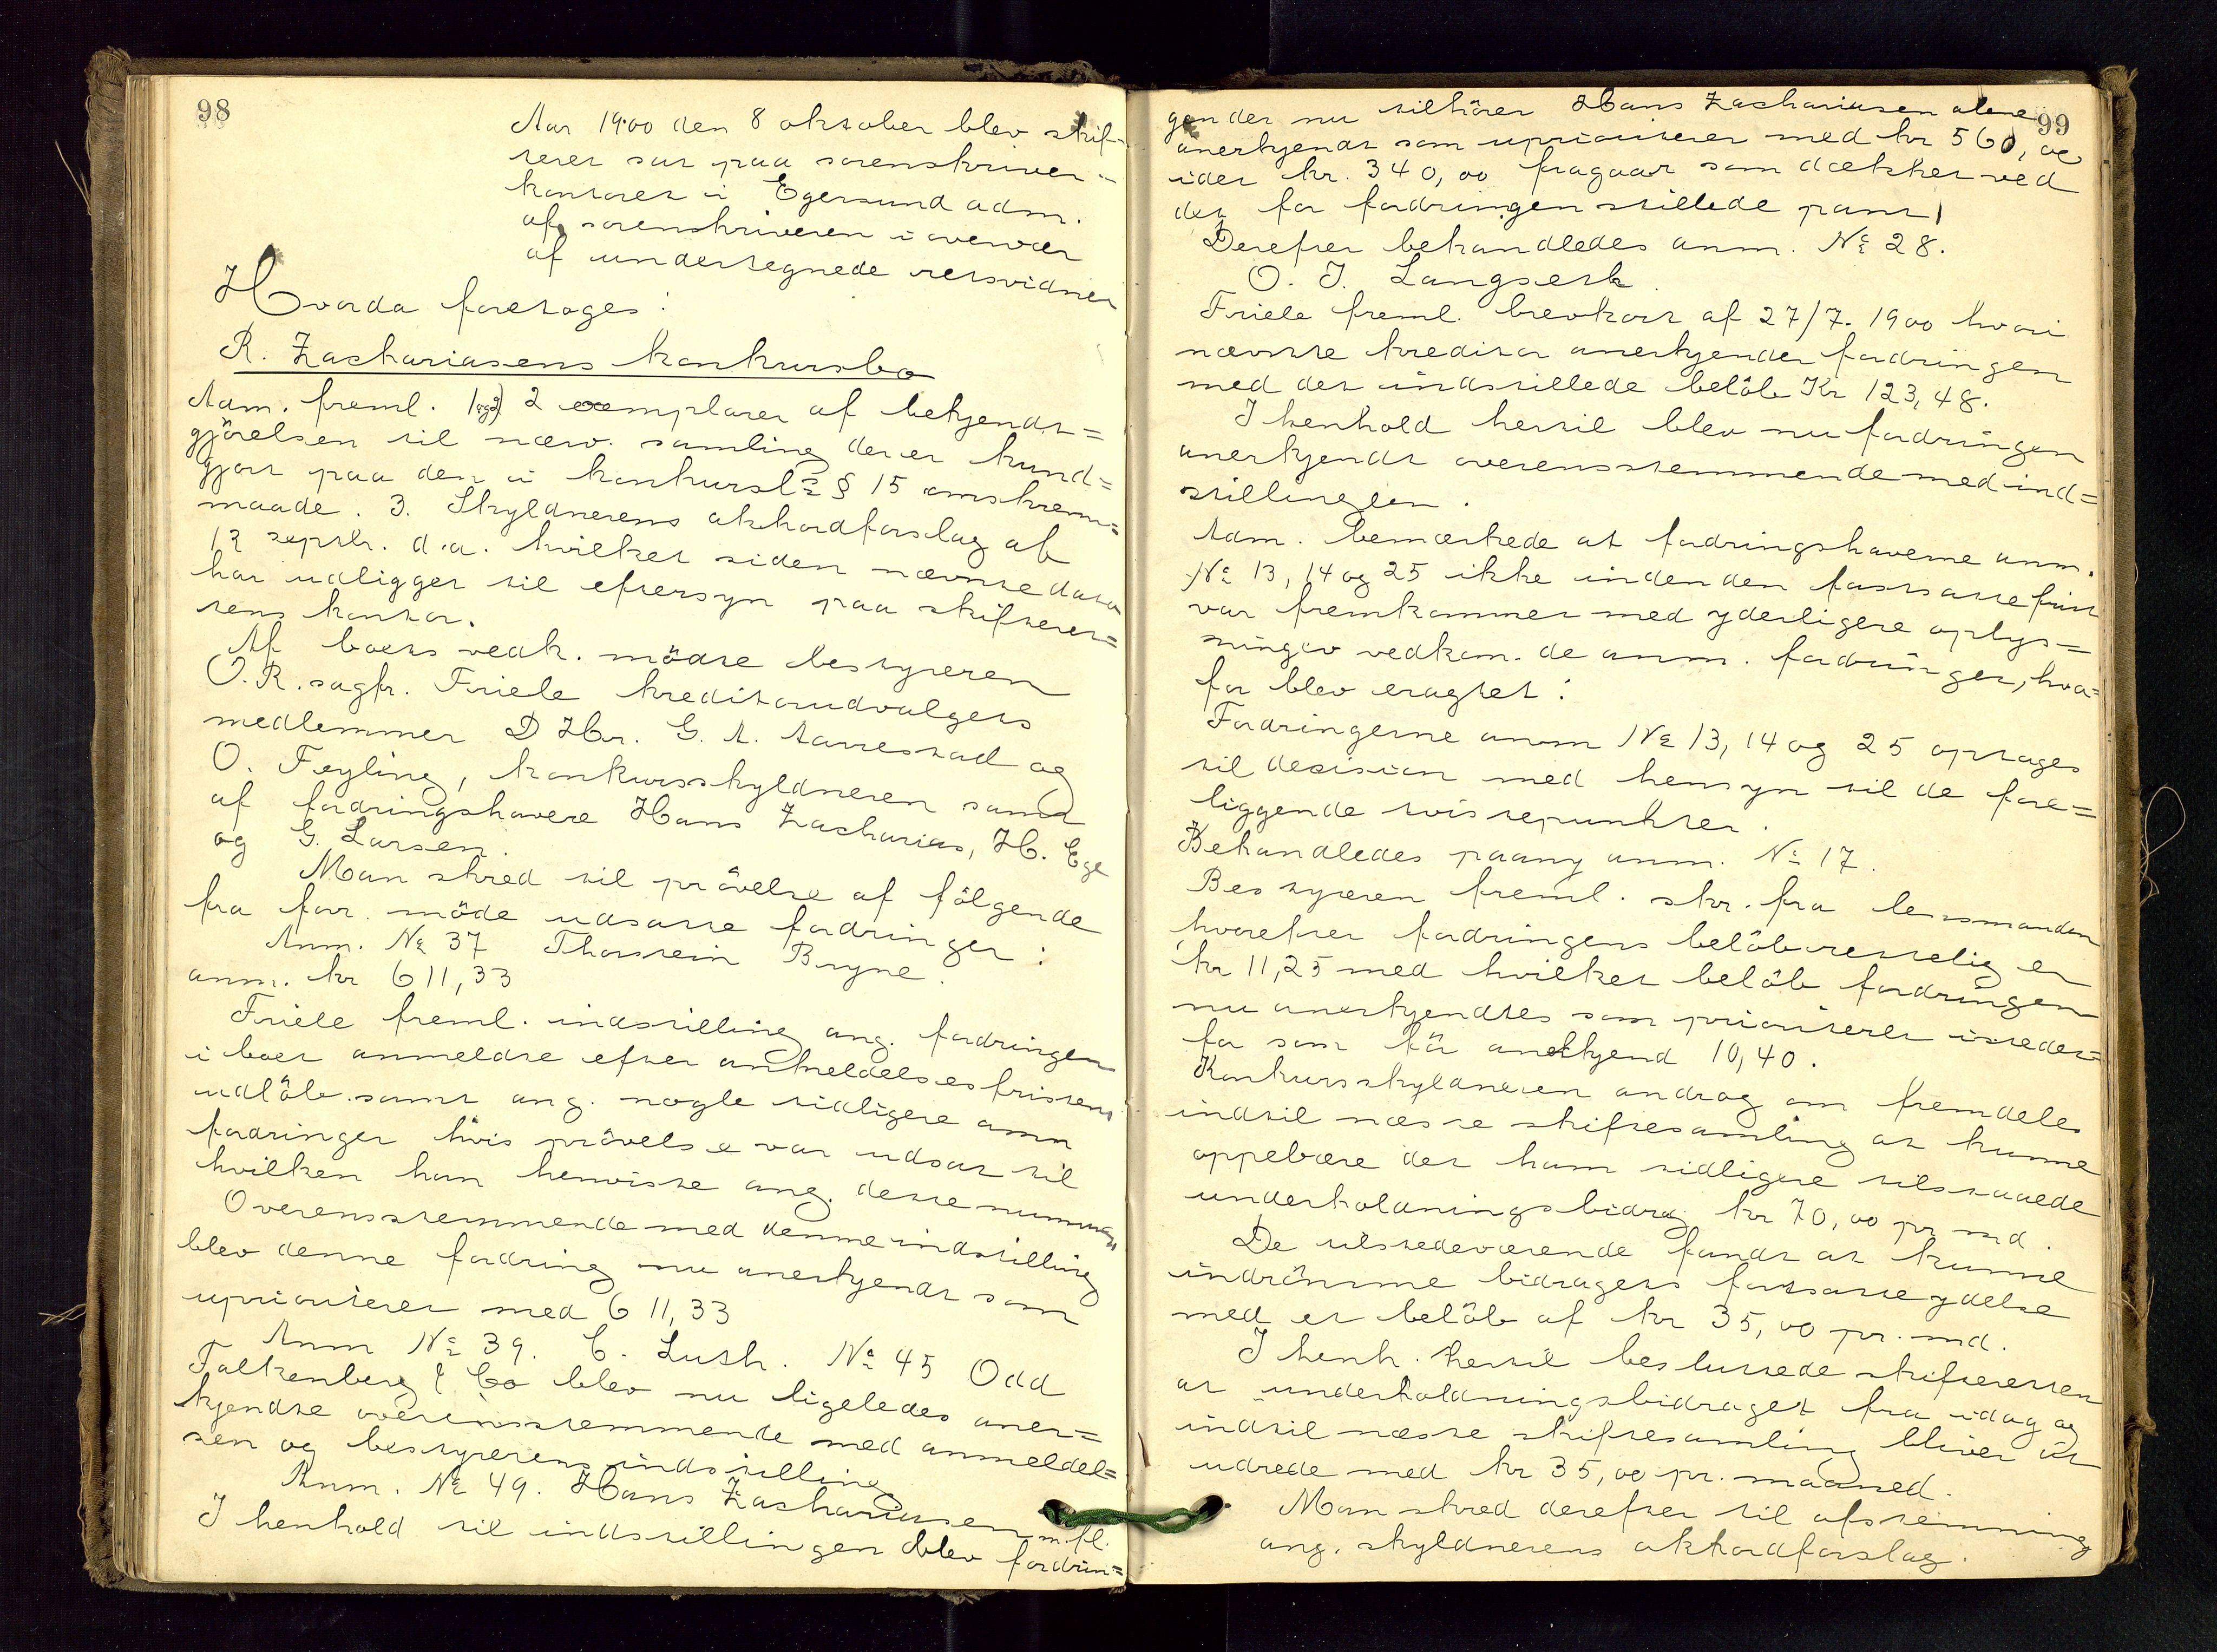 98
Aar 1900 den 8 oktober blev skif-
teret sat paa sorenskriver-
kontoret i Egersund adm.
af sorenskriveren i overvær
af undertegnede retsvidner
Hvorda foretoges:
R. Zachariasens konkursbo
Adm. freml. 1 og 2) 2 exemplarer af bekjendt=
gjörelsen til nærv. samling der er kund=
gjort paa den i konkursl's § 15 omskrevne
maade. 3. Skyldnerens akkordforslag af
12 septbr. d.a. hvilket siden nævnte dato
har udligget til eftersyn paa skifteret=
tens kontor.
Af boets vedk. mödte bestyreren
O.R.sagfr. Friele kreditorudvalgets
medlemmer D Hr. G. A. Aarrestad og
O. Feyling, konkursskyldneren samt
af fordringshavere Hans Zacharias, H. Ege
og G. Larsen.
Man skred til prövelse af fölgende
fra forr. möde udsatte fordringer:
Anm. No 37 Thorstein Bryne.
anm. kr 611,33
Friele freml. indstilling ang. fordringen
i boet anmeldte efter anmeldelsesfristens
udlöb samt ang. nogle tidligere anm
fordringer hvis prövelse var udsat til
hvilken han henviste ang. dette nummer
Overensstemmende med denne indstilling
blev denne fordring nu anerkjendt som
uprioriteret med 611,33
Anm No 39. C. Lush. No 45 Odd
Falkenberg & Co blev nu ligeledes aner=
kjendte overensstemmende med anmeldel=
sen og bestyrerens indstilling
Anm. No 49. Hans Zachariasen m.fl.
I henhold til indstillingen blev fordrin=
99
gen der nu tilhörer Hans Zachariasen alene
anerkjendt som uprioriteret med kr 560, og
idet kr. 340,00 fragaar som dækket ved
det for fordringen stillede pant
Derefter behandledes anm. No 28.
O. J. Langseth.
Friele freml. brevkort af 27/7. 1900 hvori
nævnte kreditor anerkjender fordringen
med det indstillede belöb Kr 123,48.
I henhold hertil blev nu fordringen
anerkjendt overensstemmende med ind=
stillingen.
Adm. bemærkede at fordringshaverne anm.
No 13, 14 og 25 ikke inden den fastsatte frist
var fremkommet med yderligere oplys=
ninger vedkom. de anm. fordringer, hvor=
for blev eragtet:
Fordringerne anm No 13, 14 og 25 optages
til decision med hensyn til de fore=
liggende tvistepunkter.
Behandledes paany anm. No 17.
Bestyreren freml. skr. fra lensmanden
hvorefter fordringens belöb rettelig er
kr 11,25 med hvilket belöb fordringen
nu anerkjendtes som prioriteret isteden=
for som för anerkjend 10,40.
Konkursskyldneren androg om fremdeles
indtil næste skiftesamling at kunne
oppebære det ham tidligere tilstaaede
underholdningsbidrag kr 70,00 pr md.
De tilstedeværende fandt at kunne
indrömme bidragets fortsatte ydelse
med et belöb af kr 35,00 pr. md.
I henh. hertil besluttede skifteretten
at underholdningsbidraget fra idag og
indtil næste skiftesamling bliver at
udrede med kr 35,00 pr. maaned.
Man skred derefter til afstemning
ang. skyldnerens akkordforslag.